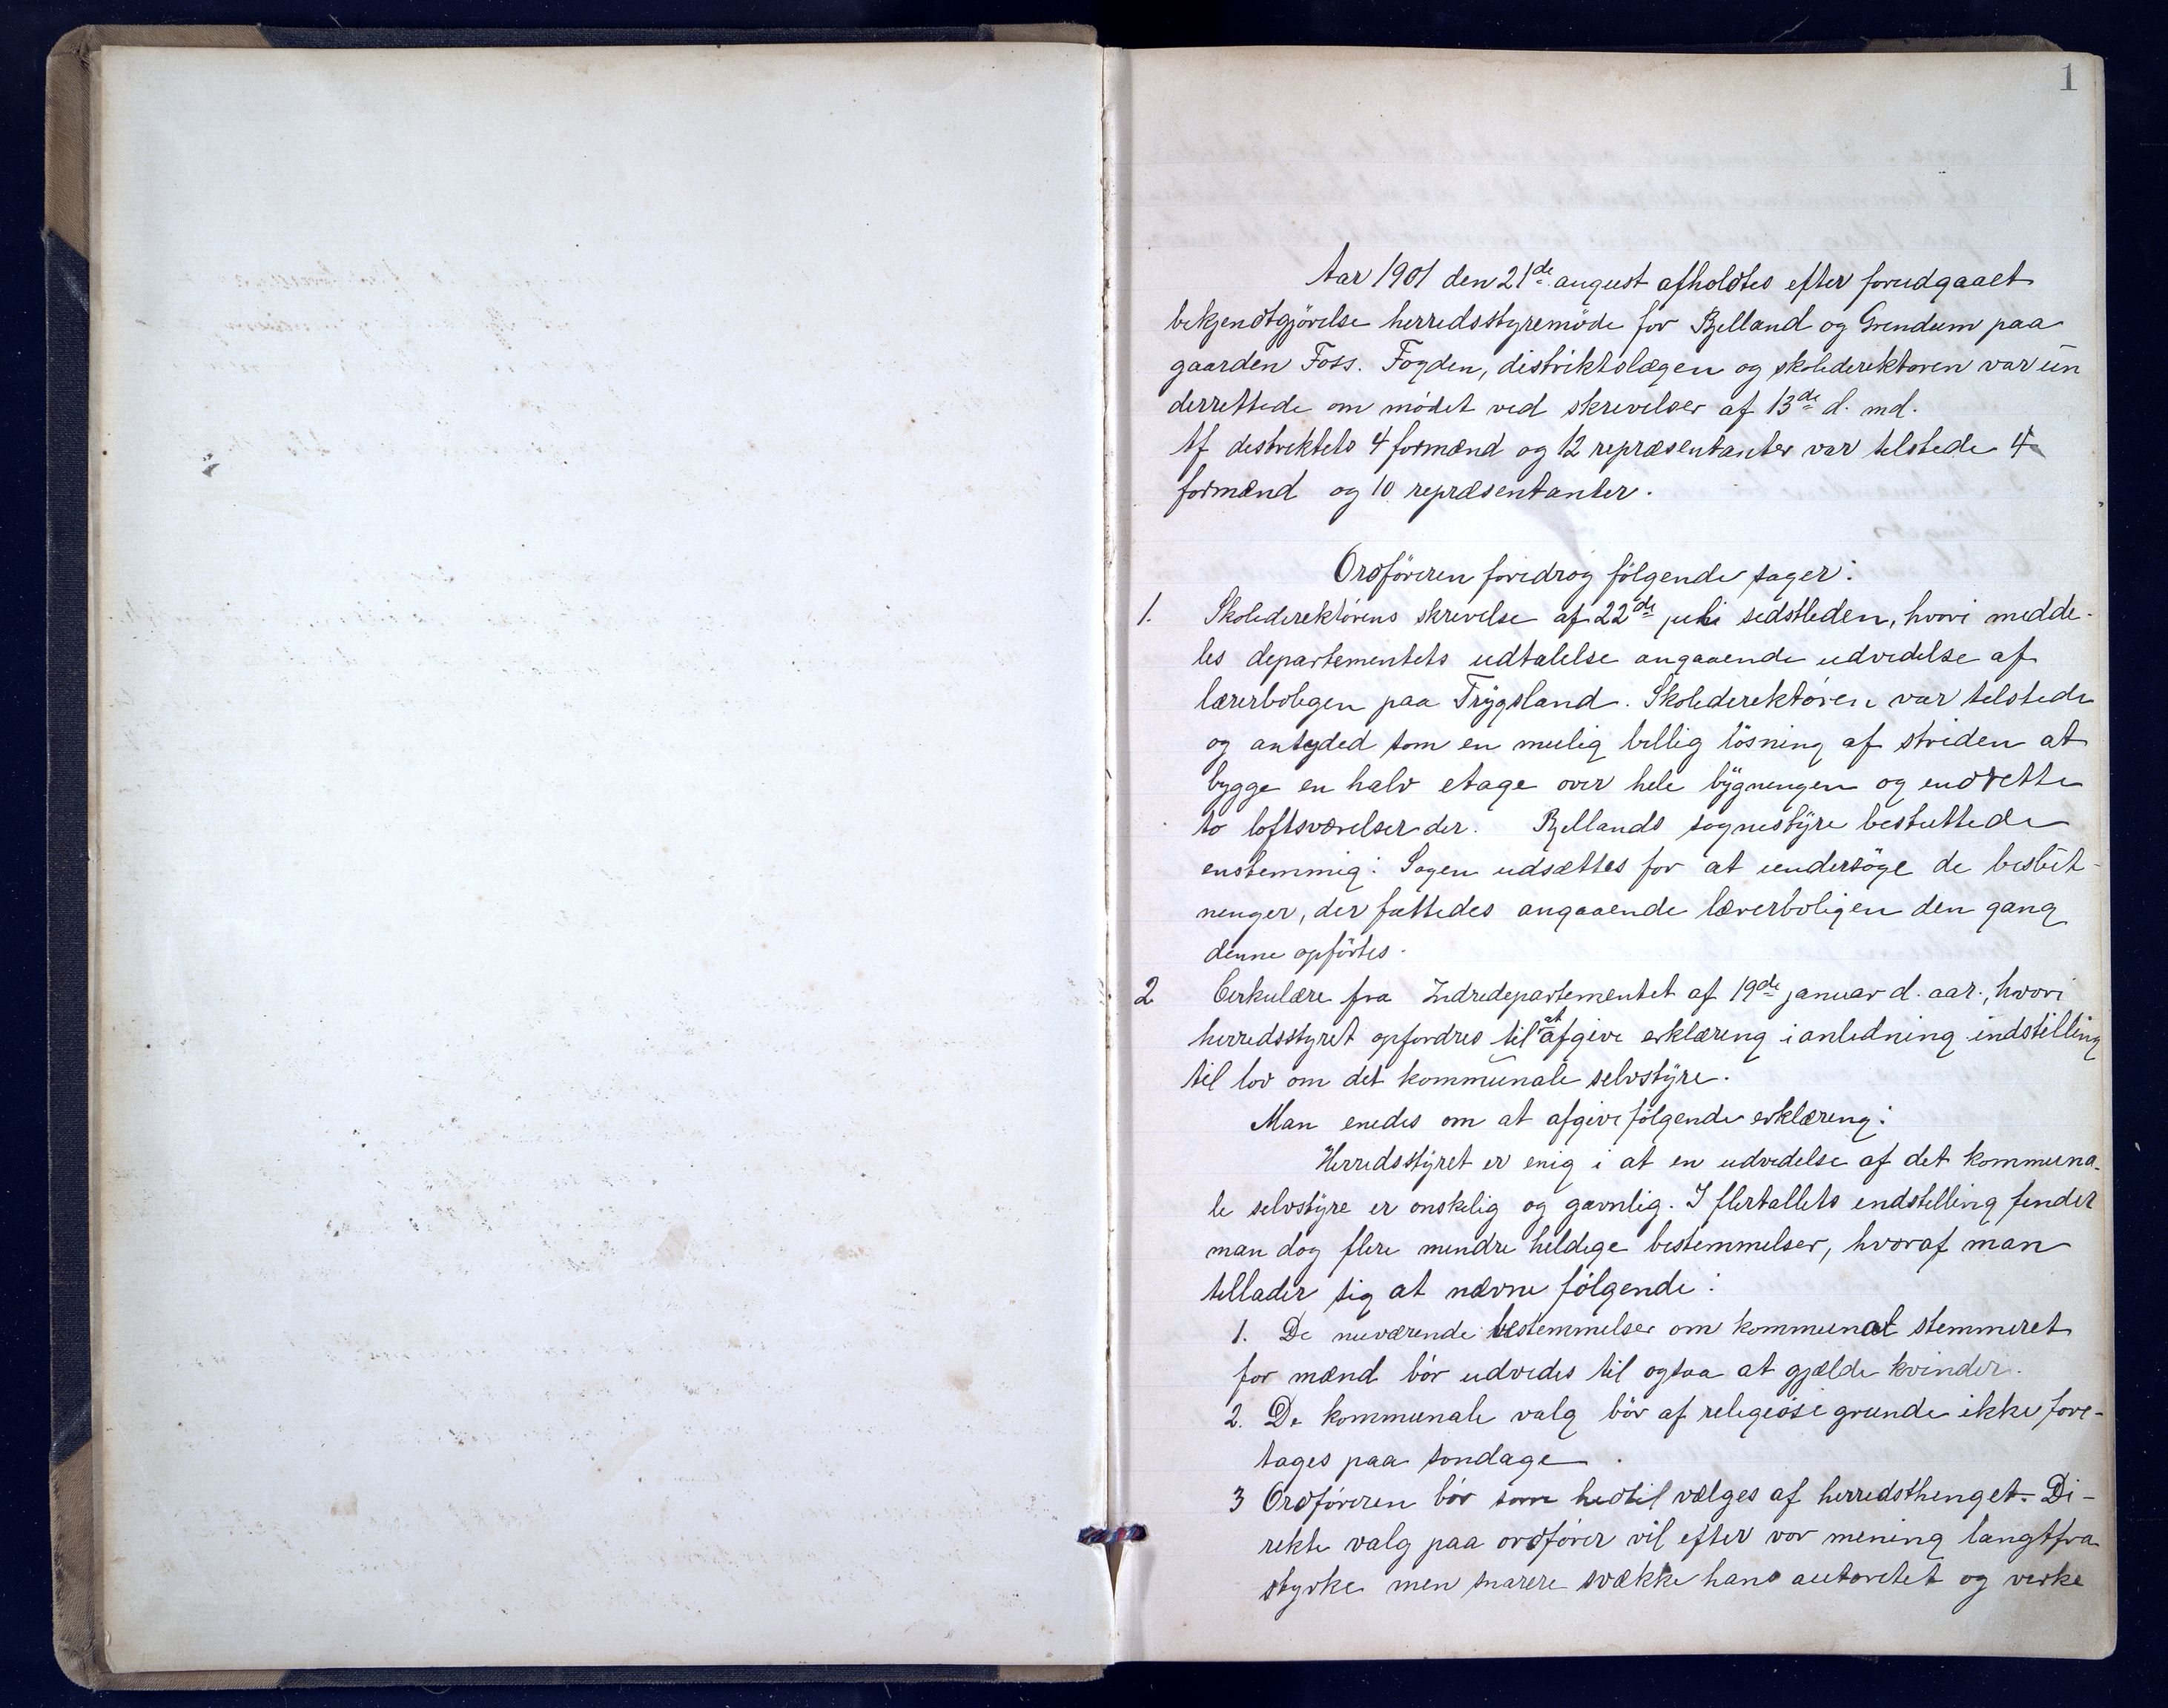 1
Aar 1901 den 21de august afholdtes efter forudgaaet
bekjendtgjörelse herredsstyremöde for Bjelland og Grendum paa
gaarden Foss. Fogden, distriktslægen og skoledirektøren var un
derrettede om mödet ved skrivelser af 13de d. md.
Af distriktets 4 formænd og 12 repræsentanter var tilstede 4
formænd og 10 repræsentanter.
Ordföreren foredrog fölgende sager:
1. Skoledirektörens skrivelse af 22de juli sidstleden, hvori medde-
les departementets udtalelse angaaende udvidelse af
lærerboligen paa Trygsland. Skoledirektören var tilstede
og antyded som en mulig billig lösning af striden at
bygge en halv etage over hele bygningen og indrette
to loftsværelser der. Bjellands sognestyre besluttede
enstemmig: Sagen udsættes for at undersöge de beslut-
ninger, der fattedes angaaende lærerboligen den gang
denne opförtes.
2 Cirkulære fra Indredepartementet af 19de januar d. aar., hvori
herredsstyret opfordres til at afgive erklæring i anledning indstilling
til lov om det kommunale selvstyre.
Man enedes om at afgive fölgende erklæring:
Herredsstyret er enig i at en udvidelse af det kommuna-
le selvstyre er onskelig og gavnlig. I flertallets indstilling finder
man dog flere mindre heldige bestemmelser, hvoraf man
tillader sig at nævne fölgende:
1. De nuværende bestemmelser om kommunal stemmeret
for mænd bör udvides til ogsaa at gjælde kvinder.
2. De kommunale valg bör af religiöse grunde ikke fore-
tages paa söndage.
3 Ordföreren bör som hidtil vælges af herredsthinget. Di-
rekte valg paa ordförer vil efter vor mening langtfra
styrke men snarere svække hans autoritet og virke